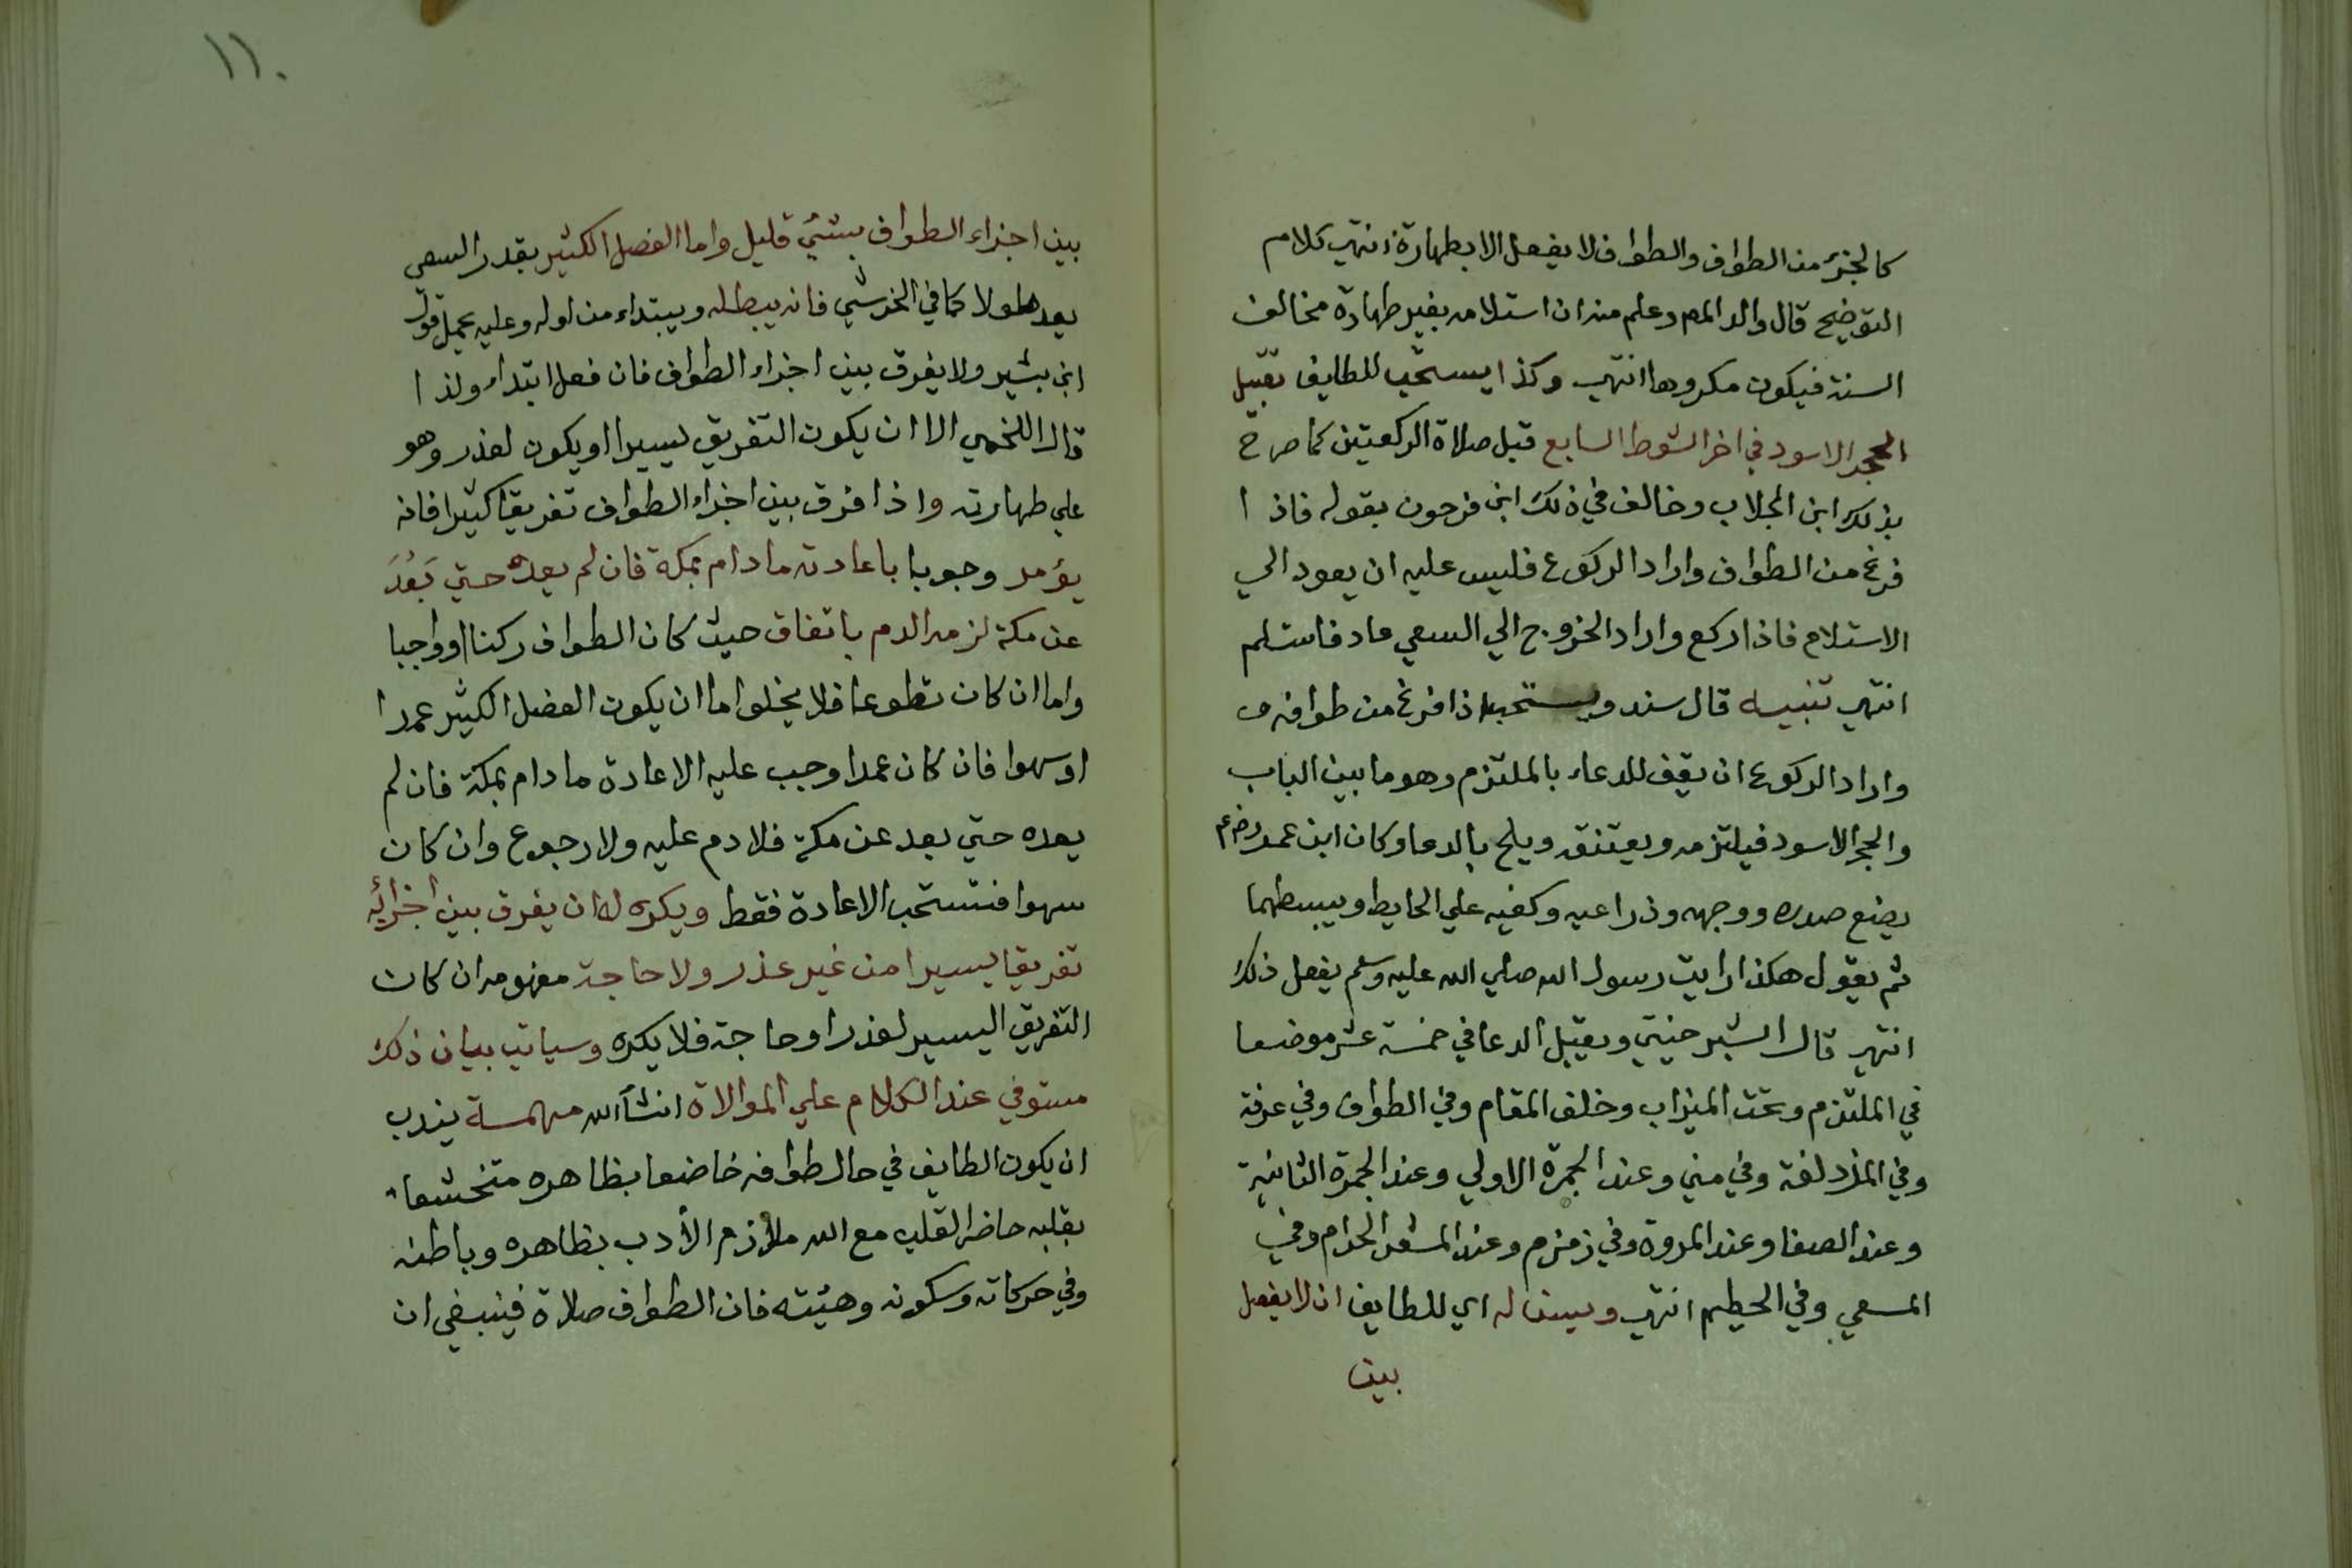 كالجزء من الطواف والطواف لا يفعل الا بطهارة انتهي كلام
التوضيح قال والد المص وعلم منه ان استلامه بغير طهارة مخالف
السنة فيكون مكروها انتهي وكذا يستحب للطايف تقبيل
الحجر الاسود في اخر الشوط السابع قبل صلاة الركعتين كما صرح
بذلك ابن الجلاب وخالف في ذلك ابن فرحون بقوله فاذا
فرغ من الطواف واراد الركوع فليس عليه ان يعود الي
الاستلام فاذا ركع واراد الخروج الي السعي عاد فاستلم
انتهي تنبيه قال سند ويستحب اذا فرغ من طوافه
واراد الركوع ان يقف للدعاء بالملتزم وهو ما بين الباب
والحجر الاسود فيلتزمه ويعتنقه ويلح بالدعا وكان ابن عمر
يضع صدره ووجهه وذراعيه وكفيه علي الحايط ويبسطهما
ثم يقول هكذا رايت رسول الله صلي الله عليه وسلم يفعل ذلك
انتهي قال الشبرخيتي ويقبل الدعا في خمسة عشر موضعا
في الملتزم وتحت الميزاب وخلف المقام وفي الطواف وفي عرفة
وفي المزدلفة وفي مني وعند الجمرة الاولي وعند الجمرة الثانية
وعند الصفا وعند المروة وفي زمزم وعند المشعر الحرام وفي
المسعي وفي الحطيم انتهي ويسن له اي للطايف ان لا يفصل
بين
١١٠
بين اجزاء الطواف بشئ قليل واما الفصل الكثير بقدر السعي
يعد طولا كما في الخرشي فانه يبطله ويبتداء من اوله وعليه يحمل قول
ابن بشير ولا يفرق بين اجزاء الطواف فان فعل ابتداء ولذا
قال اللخمي الا ان يكون التفريق يسيرا او يكون لعذر وهو
علي طهارته واذا فرق بين اجزاء الطواف تفريقا كثيرا فانه
يؤمر وجوبا باعادته ما دام بمكة فان لم يعده حتي بَعُدَ
عن مكة لزمه الدم باتفاق حيث كان الطواف ركنا او واجبا
واما ان كان تطوعا فلا يخلوا اما ان يكون الفصل الكثير عمدا
او سهوا فان كان عمدا وجب عليه الاعادة ما دام بمكة فان لم
يعده حتي بعد عن مكة فلا دم عليه ولا رجوع وان كان
سهوا فتستحب الاعادة فقط ويكره له ان يفرق بين اجزائه
تفريقا يسيرا من غير عذر ولا حاجة مفهومه ان كان
التفريق اليسير لعذر او حاجة فلا يكره وسياتي بيان ذلك
مستوفي عند الكلام علي الموالاة انشأ الله مهمة يندب
ان يكون الطايف في حال طوافه خاضعا بظاهره متخشعا
بقلبه حاضر القلب مع الله ملازم الأدب بظاهره وباطنه
وفي حركاته وسكونه وهيئته فان الطواف صلاة فينبغي ان